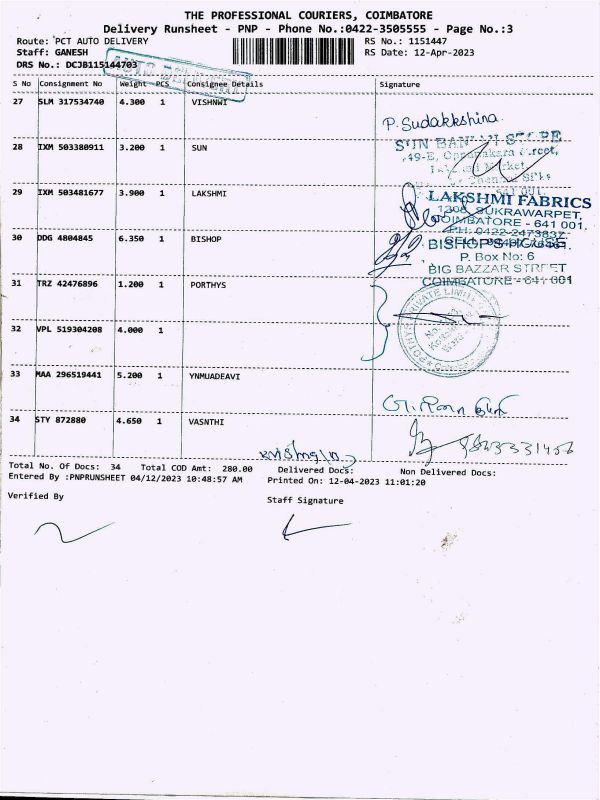 THE PROFESSIONAL COURIERS, COIMBATORE
Delivery Runsheet - PNP - Phone No.:0422-3505555 - Page No.:3
Route: PCT AUTO DELIVERY RS No.: 1151447
Staff: GANESH RS Date: 12-Apr-2023
DRS No.: DCJB115144703
AUTO DELIVERY
S No Consignment No Weight PCS Consignee Details Signature
27 SLM 317534740 4.300 1 VISHNWI
P. Sudakkshina.
28 IXM 503380911 3.200 1 SUN
29 IXM 503481677 3.900 1 LAKSHMI
LAKSHMI FABRICS
SUKRAWARPET,
COIMBATORE - 641 001.
30 DDG 4804845 6.350 1 BISHOP
BISHOP'S HOUSE
P. Box No: 6
BIG BAZZAR STREET
COIMBATORE - 641 001
31 TRZ 42476896 1.200 1 PORTHYS
32 VPL 519304208 4.000 1
33 MAA 296519441 5.200 1 YNMUADEAVI
34 STY 872880 4.650 1 VASNTHI
Total No. Of Docs: 34 Total COD Amt: 280.00 Delivered Docs: Non Delivered Docs:
Entered By :PNPRUNSHEET 04/12/2023 10:48:57 AM Printed On: 12-04-2023 11:01:20
Verified By Staff Signature